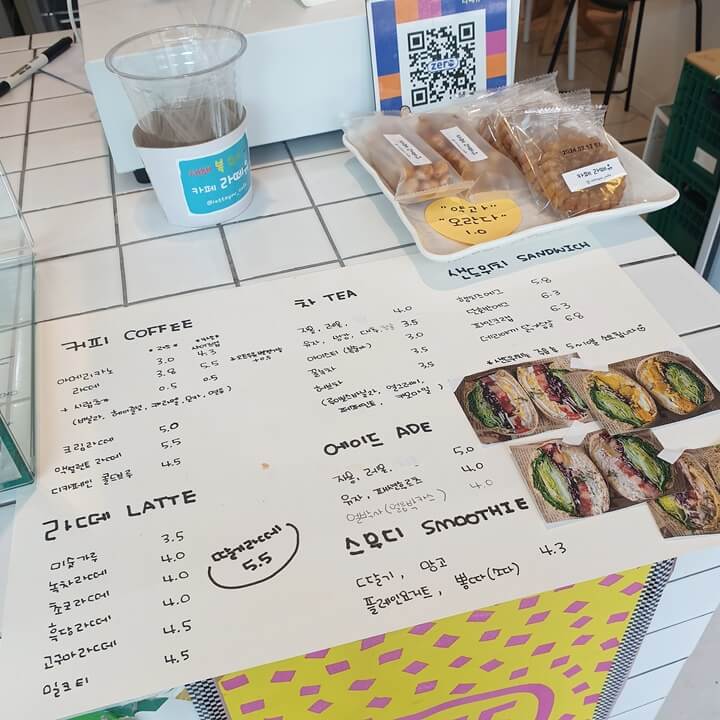 zero
카페 라떼유
카페 라떼유
"약과"
"오란다"
1.0
커피 COFFEE
4.3
아메리카노 3.0
라떼 3.8 5.5
+ 시럽추가 0.5 0.5
크림라떼 5.0
5.5
디카페인 콜드브루 4.5
라떼 LATTE
미숫가루 3.5
녹차라떼 4.0
초코라떼 4.0
흑당라떼 4.0
고구마라떼 4.5
밀크티 4.5
딸기라떼
5.5
차 TEA
자몽, 레몬, 4.0
유자, 생강, 대추, 3.5
아이스티 (복숭아) 3.0
3.5
허브차 3.5
페퍼민트, 캐모마일)
에이드 ADE
자몽, 레몬, 5.0
유자, 패션후르츠 4.0
4.0
스무디 SMOOTHIE
딸기, 망고 4.3
플레인요거트,
샌드위치 SANDWICH
햄치즈에그 5.8
6.3
6.3
6.8